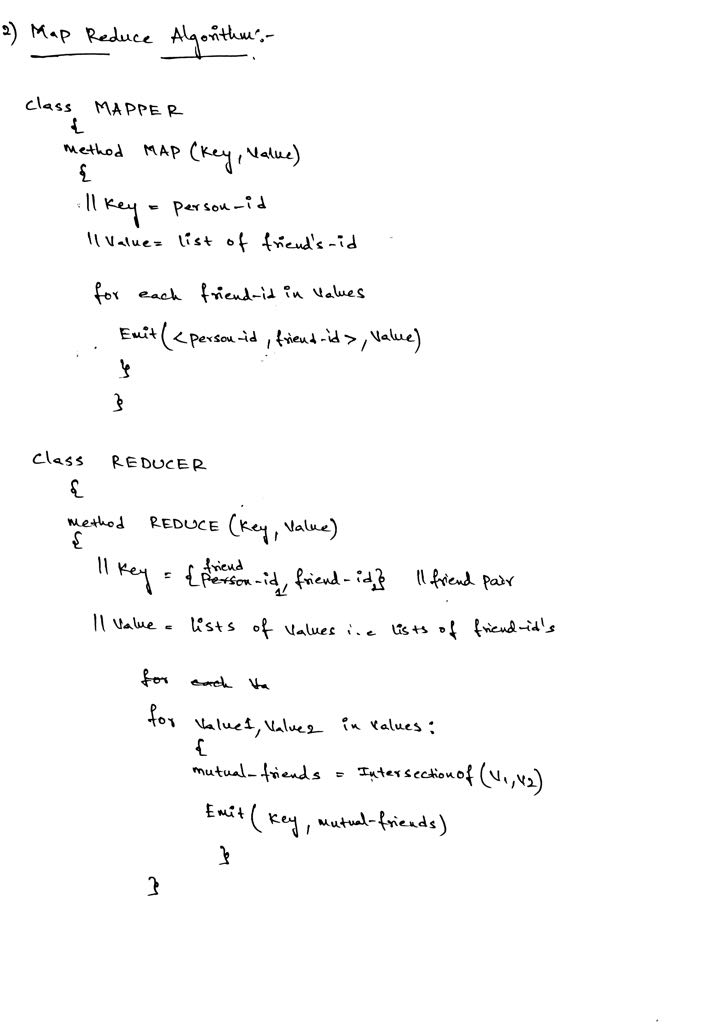 2) Map Reduce Algorithm:-
class MAPPER
{
method MAP (Key, Value)
{
// Key = person-id
// Value = list of friend's-id
for each friend-id in values
Emit(<person-id, friend-id>, Value)
}
}
class REDUCER
{
method REDUCE (Key, Value)
{
friend
// Key = {person-id1, friend-id2} // friend pair
// Value = lists of values i.e lists of friend-id's
for each Va
for Value1, Value2 in values:
{
mutual-friends = Intersectionof (V1, V2)
Emit( Key, mutual-friends)
}
}